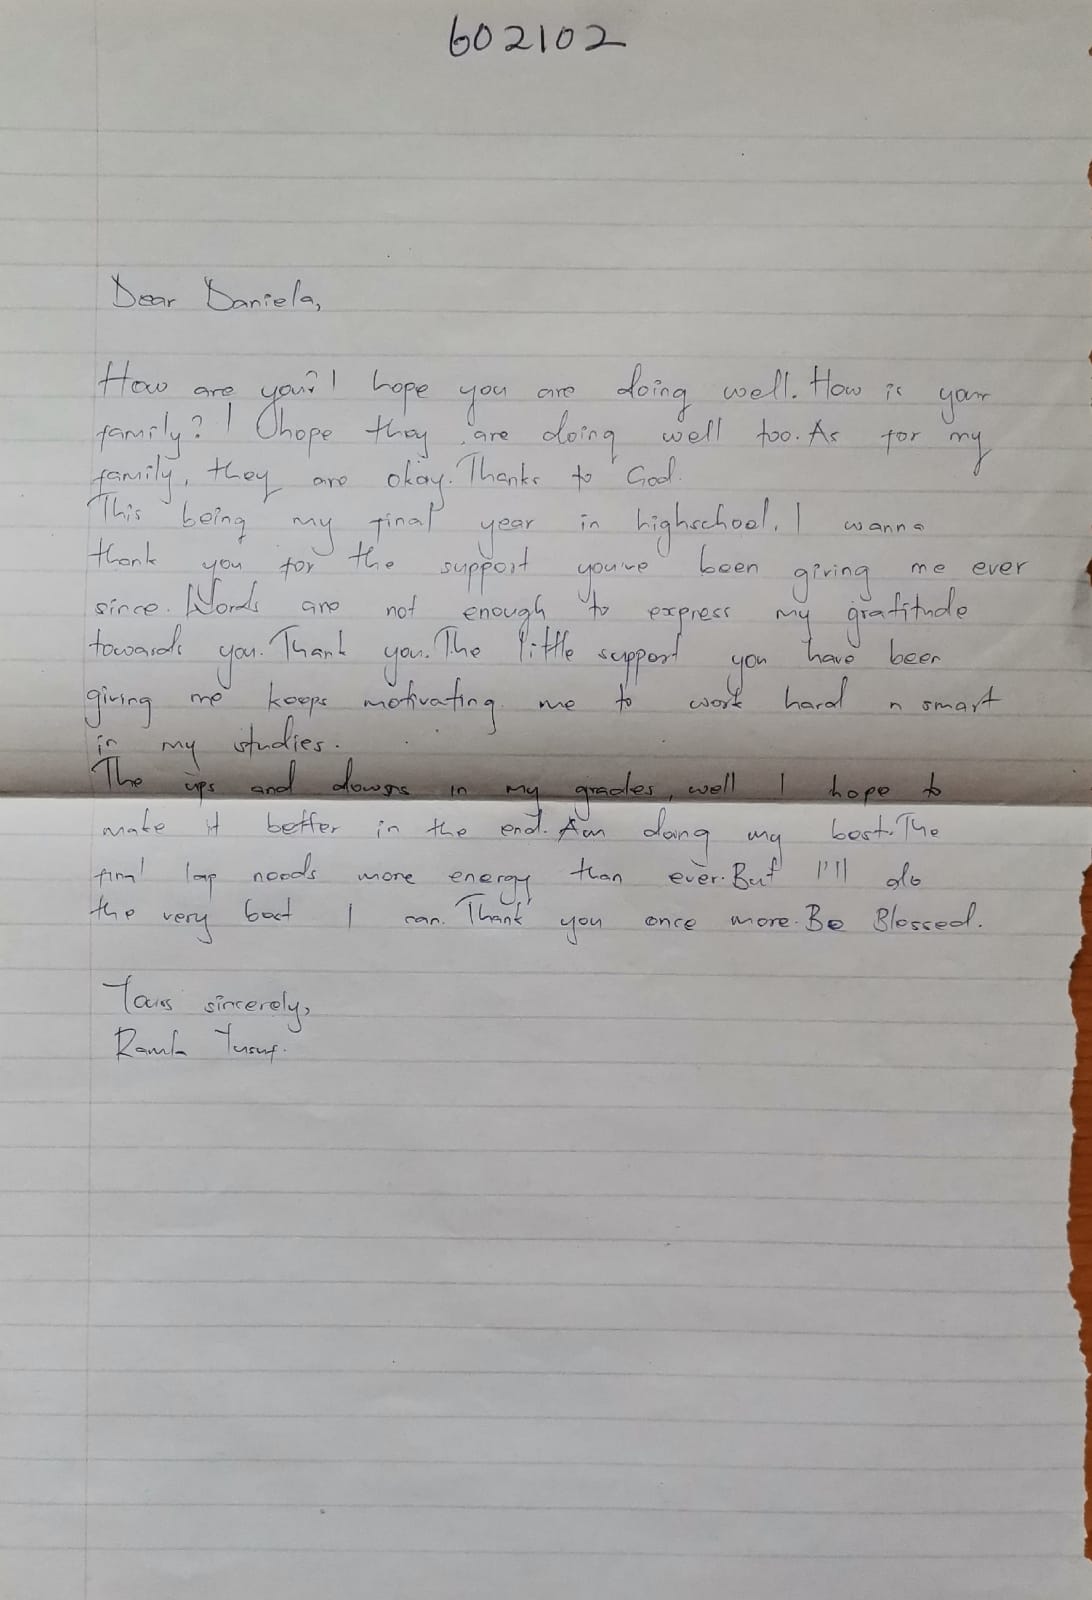 602102
Dear Daniela,
How are you? I hope you are doing well. How is your
family? I hope they are doing well too. As for my
family, they are okay. Thanks to God.
This being my final year in highschool, I wanna
thank you for the support youve been giving me ever
since. Words are not enough to express my gratitude
towards you. Thank you. The little support you have been
giving me keeps motivating me to work hard n smart
in my studies.
The ups and downs in my grades, well I hope to
make it better in the end. Am doing my best. The
final lap needs more energy than ever. But I'll do
the very best I can. Thank you once more. Be Blessed.
Yours sincerely,
Ramla Yusuf.